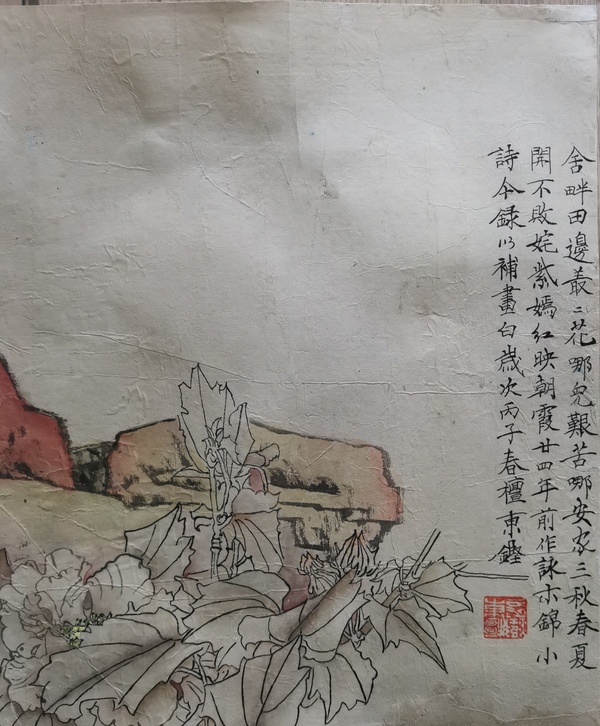 舍畔田邊叢〻花哪兒艱苦哪安家三秋春夏
開不敗姹紫嫣紅映朝霞廿四年前作詠木錦小
詩今録以補畫白歲次丙子春檀東鏗